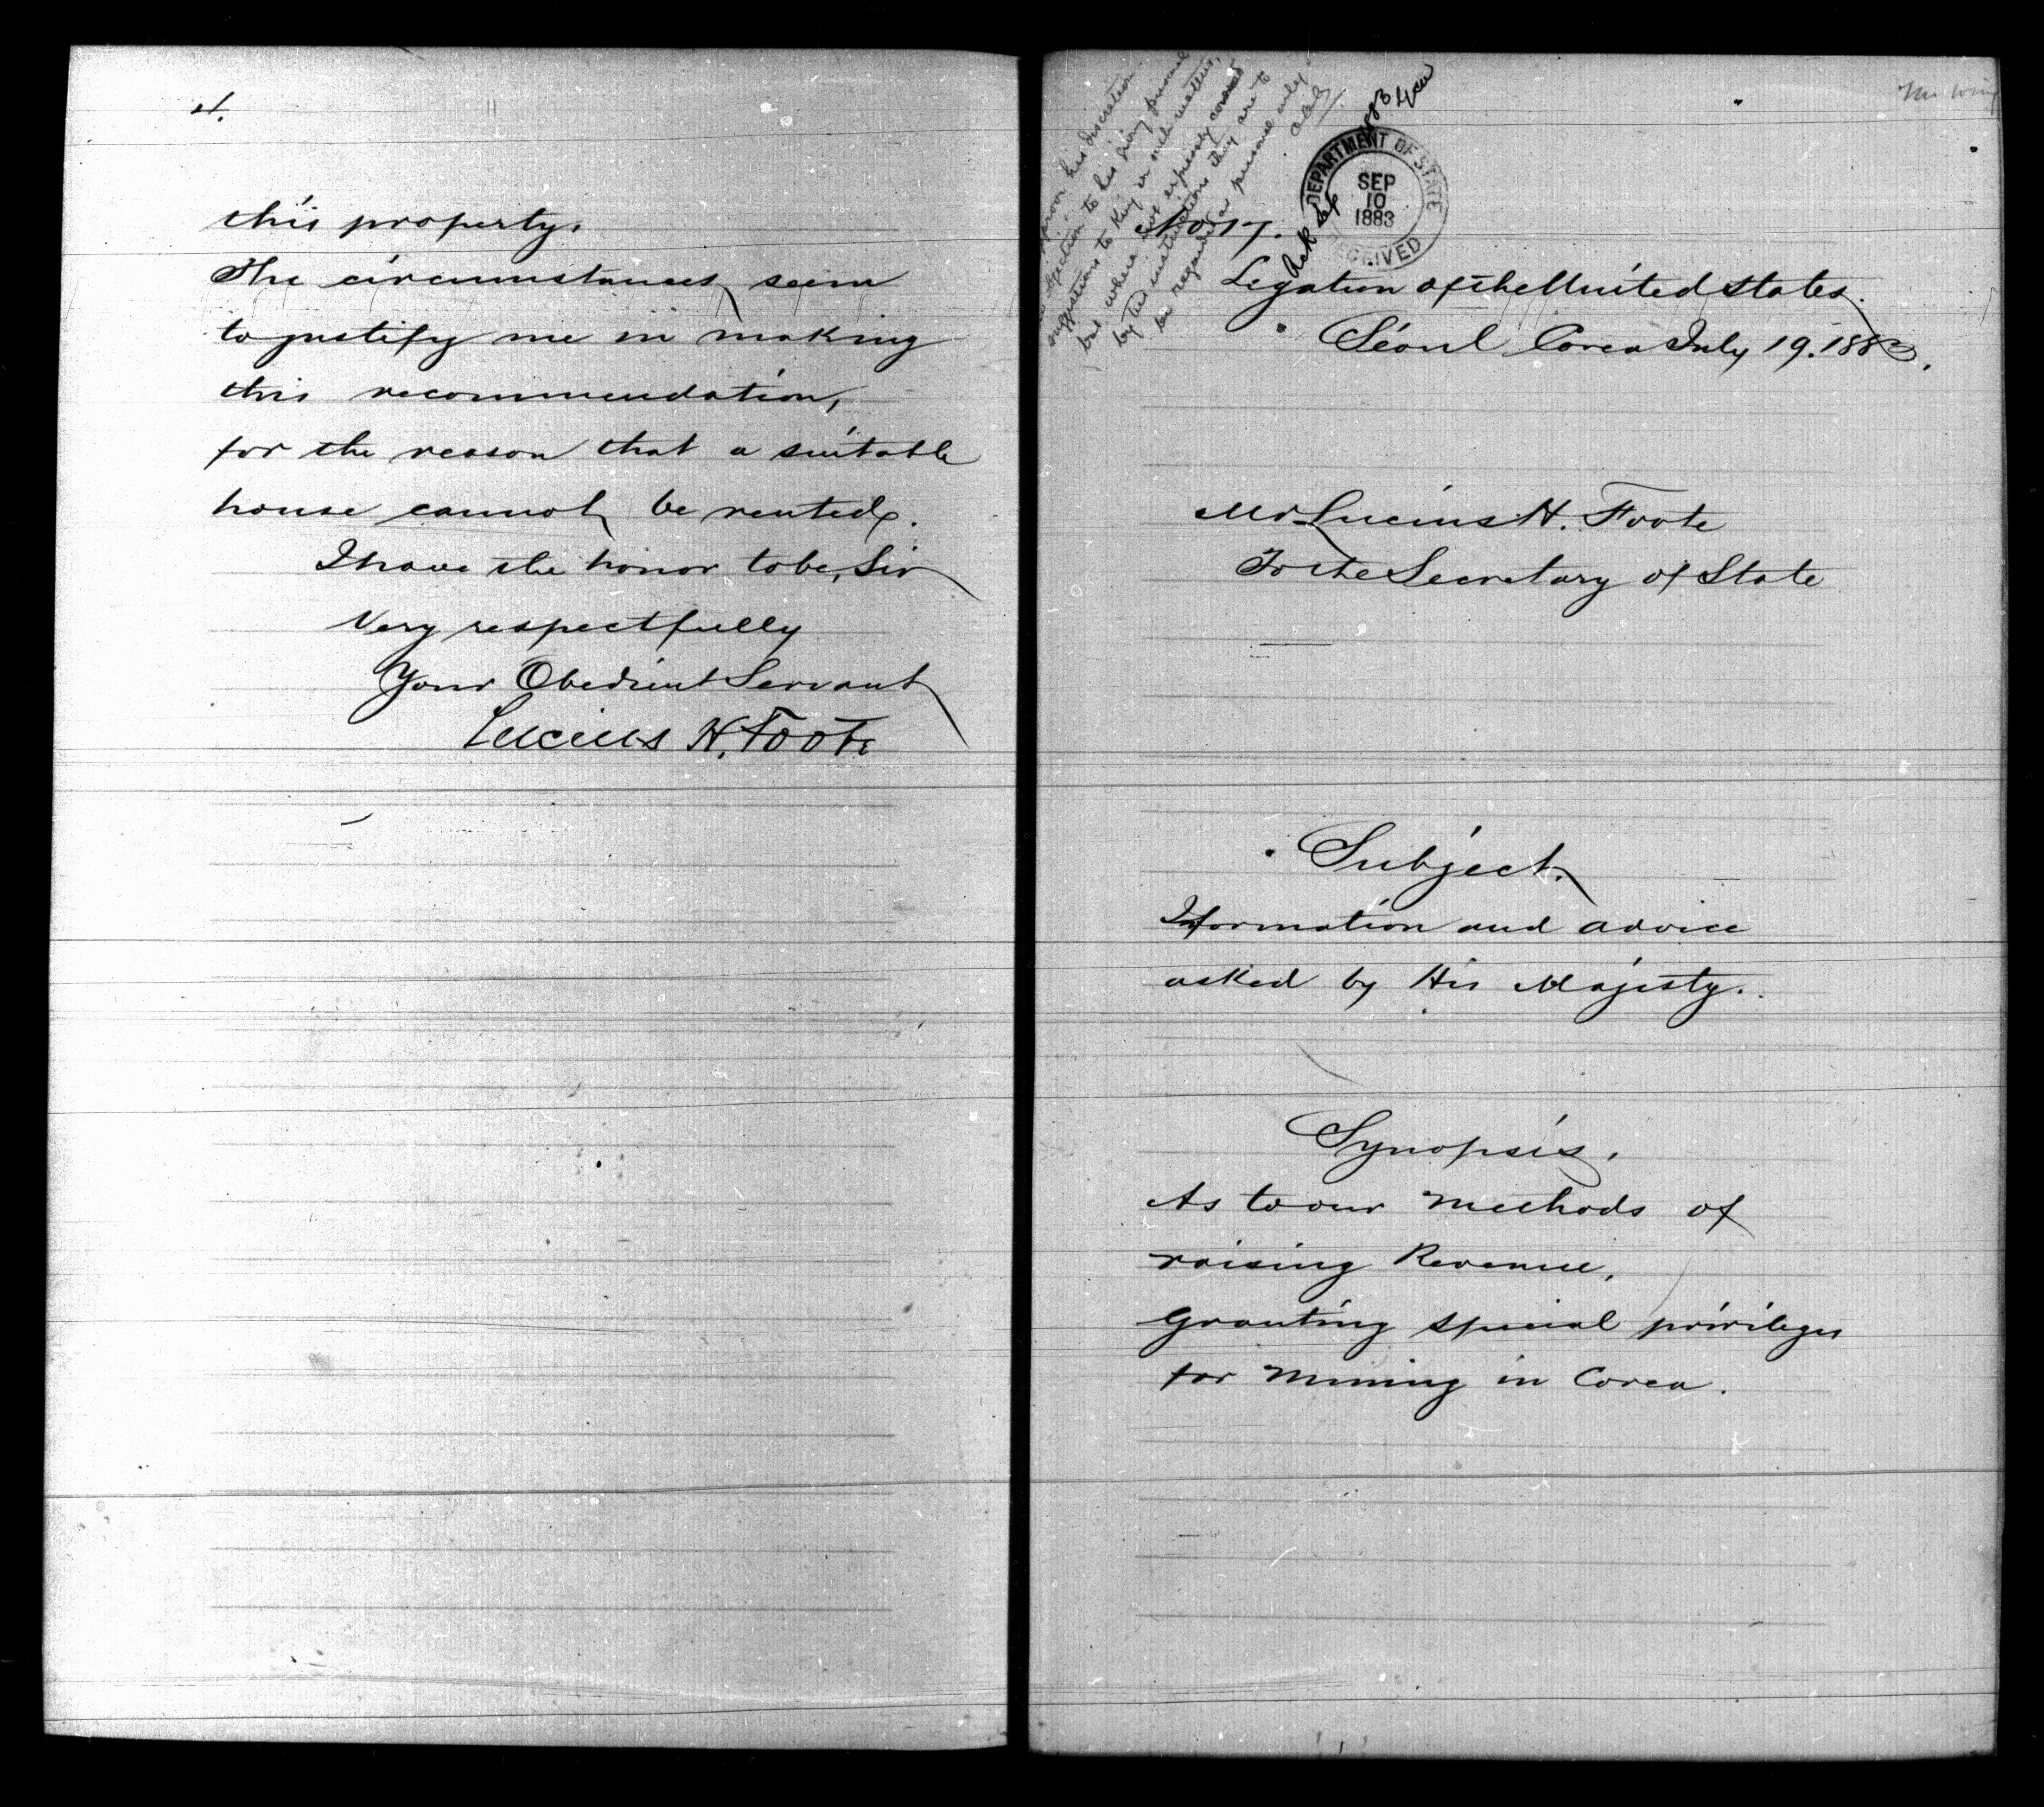 4.
this property.
The circumstances seem
to justify me in making
this recommendation,
for the reason that a suitable
house cannot be rented.
I have the honor to be, Sir
Very respectfully
Your Obedient Servant
Lucius H. Foote
upon his discretion
objection to his giving personal
suggestions to King in such matters,
but where not expressly covered
by the instructions they are to
be regarded as personal only
Ack Sep
DEPARTMENT OF STATE
SEP
10
1883
RECEIVED
No 17.
Legation of the United States.
Séoul Corea July 19. 1883.
Mr Lucius H. Foote
To the Secretary of State
Subject.
Information and advice
asked by His Majesty.
Synopsis.
As to our methods of
raising Revenue,
Granting special privileges
for Mining in Corea.